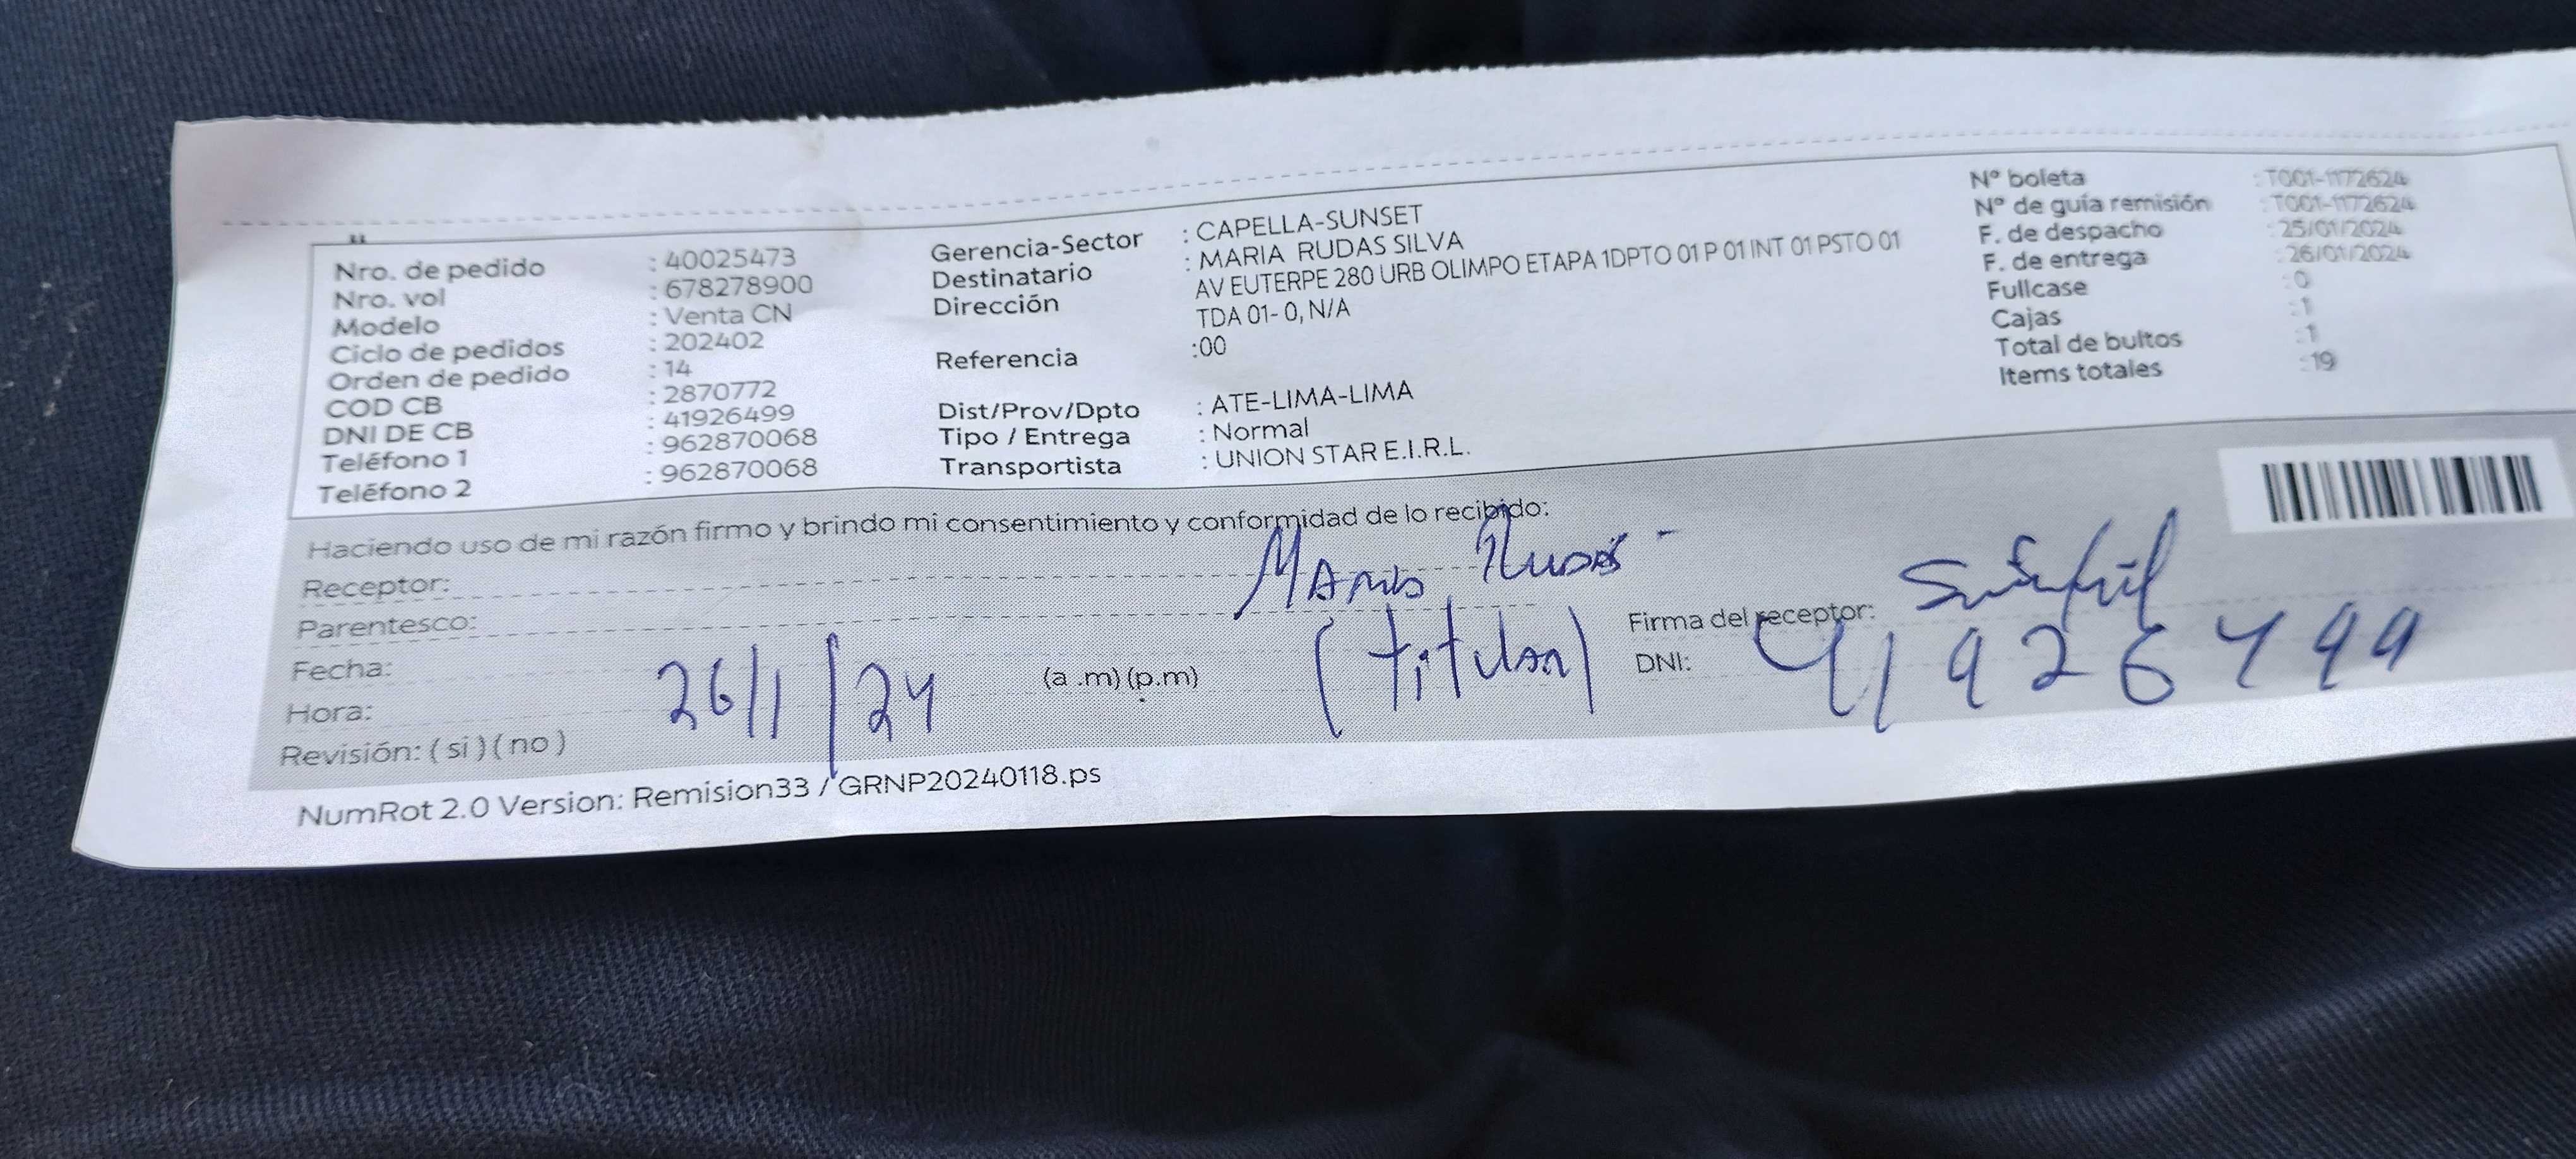 Nro. de pedido : 40025473
Nro. vol : 678278900
Modelo : Venta CN
Ciclo de pedidos : 202402
Orden de pedido : 14
COD CB : 2870772
DNI DE CB : 41926499
Teléfono 1 : 962870068
Teléfono 2 : 962870068
Gerencia-Sector : CAPELLA-SUNSET
Destinatario : MARIA RUDAS SILVA
Dirección AV EUTERPE 280 URB OLIMPO ETAPA 1DPTO 01 P 01 INT 01 PSTO 01
TDA 01- 0, N/A
Referencia :00
Dist/Prov/Dpto : ATE-LIMA-LIMA
Tipo / Entrega : Normal
Transportista : UNION STAR E.I.R.L.
Nº boleta : T001-1172624
Nº de guía remisión : T001-1172624
F. de despacho : 25/01/2024
F. de entrega : 26/01/2024
Fullcase : 0
Cajas : 1
Total de bultos : 1
Items totales : 19
Haciendo uso de mi razón firmo y brindo mi consentimiento y conformidad de lo recibido:
Receptor: Maria Rudas
Parentesco: (titular)
Firma del receptor:
Fecha: 26/1/24
DNI: 41926499
Hora: (a .m) (p.m)
Revisión: ( si ) ( no )
NumRot 2.0 Version: Remision33 / GRNP20240118.ps